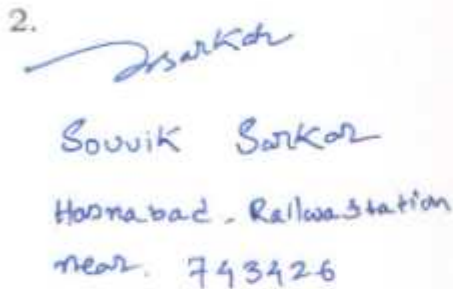 2.
Sarkar
Souvik Sarkar
Hasnabad. Railwastation
near. 743426